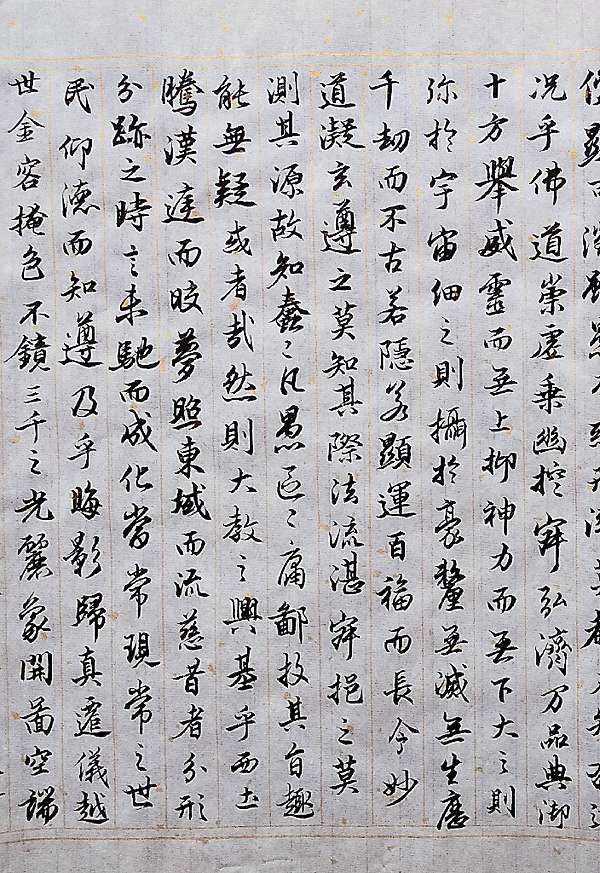 況乎佛道崇虛乘幽控寂弘濟万品典御
十方舉威靈而无上抑神力而无下大之則
弥於宇宙細之則攝於豪釐无滅無生歷
千劫而不古若隱若顯運百福而長今妙
道凝玄遵之莫知其際法流湛寂挹之莫
測其源故知蠢〻凡愚區〻庸鄙投其旨趣
能無疑或者哉然則大教之興基乎西土
騰漢庭而皎夢照東域而流慈昔者分形
分跡之時言未馳而成化當常現常之世
民仰德而知遵及乎晦影歸真遷儀越
世金容掩色不鏡三千之光麗象開圖空端